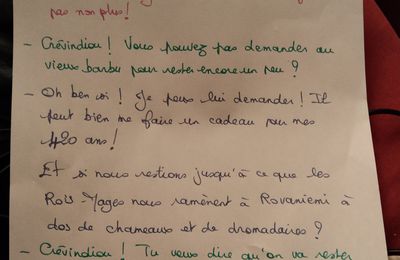 pas non plus!
- Crévindiou! Vous pouvez pas demander au
vieux barbu pour rester encore un peu?
- Oh ben si! Je peux lui demander! Il
peut bien me faire un cadeau pour mes
420 ans!
Et si nous restions jusqu'à ce que les
Rois-Mages nous ramènent à Rovaniemi à
dos de chameaux et de dromadaires?
- Crévindiou! Tu veux dire qu'on va rester